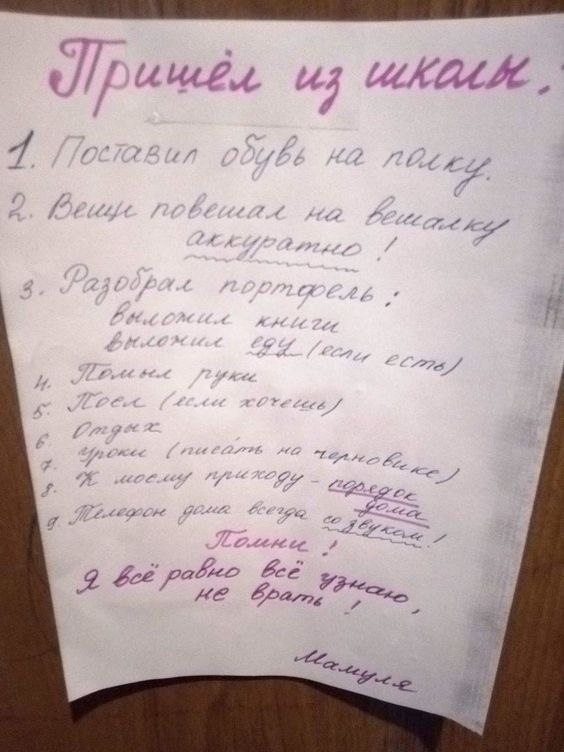 Пришёл из школы:
1. Поставил обувь на полку.
2. Вещи повешал на вешалку
аккуратно!
3. Разобрал портфель:
выложил книги
выложил еду (если есть)
4. Помыл руки
5. Поел (если хочешь)
6. Отдых
7. Уроки (писа́ть на черновике)
8. К моему приходу - порядок
дома
9. Телефон дома всегда со звуком!
Помни!
Я всё равно всё узнаю,
не врать!
Мамуля